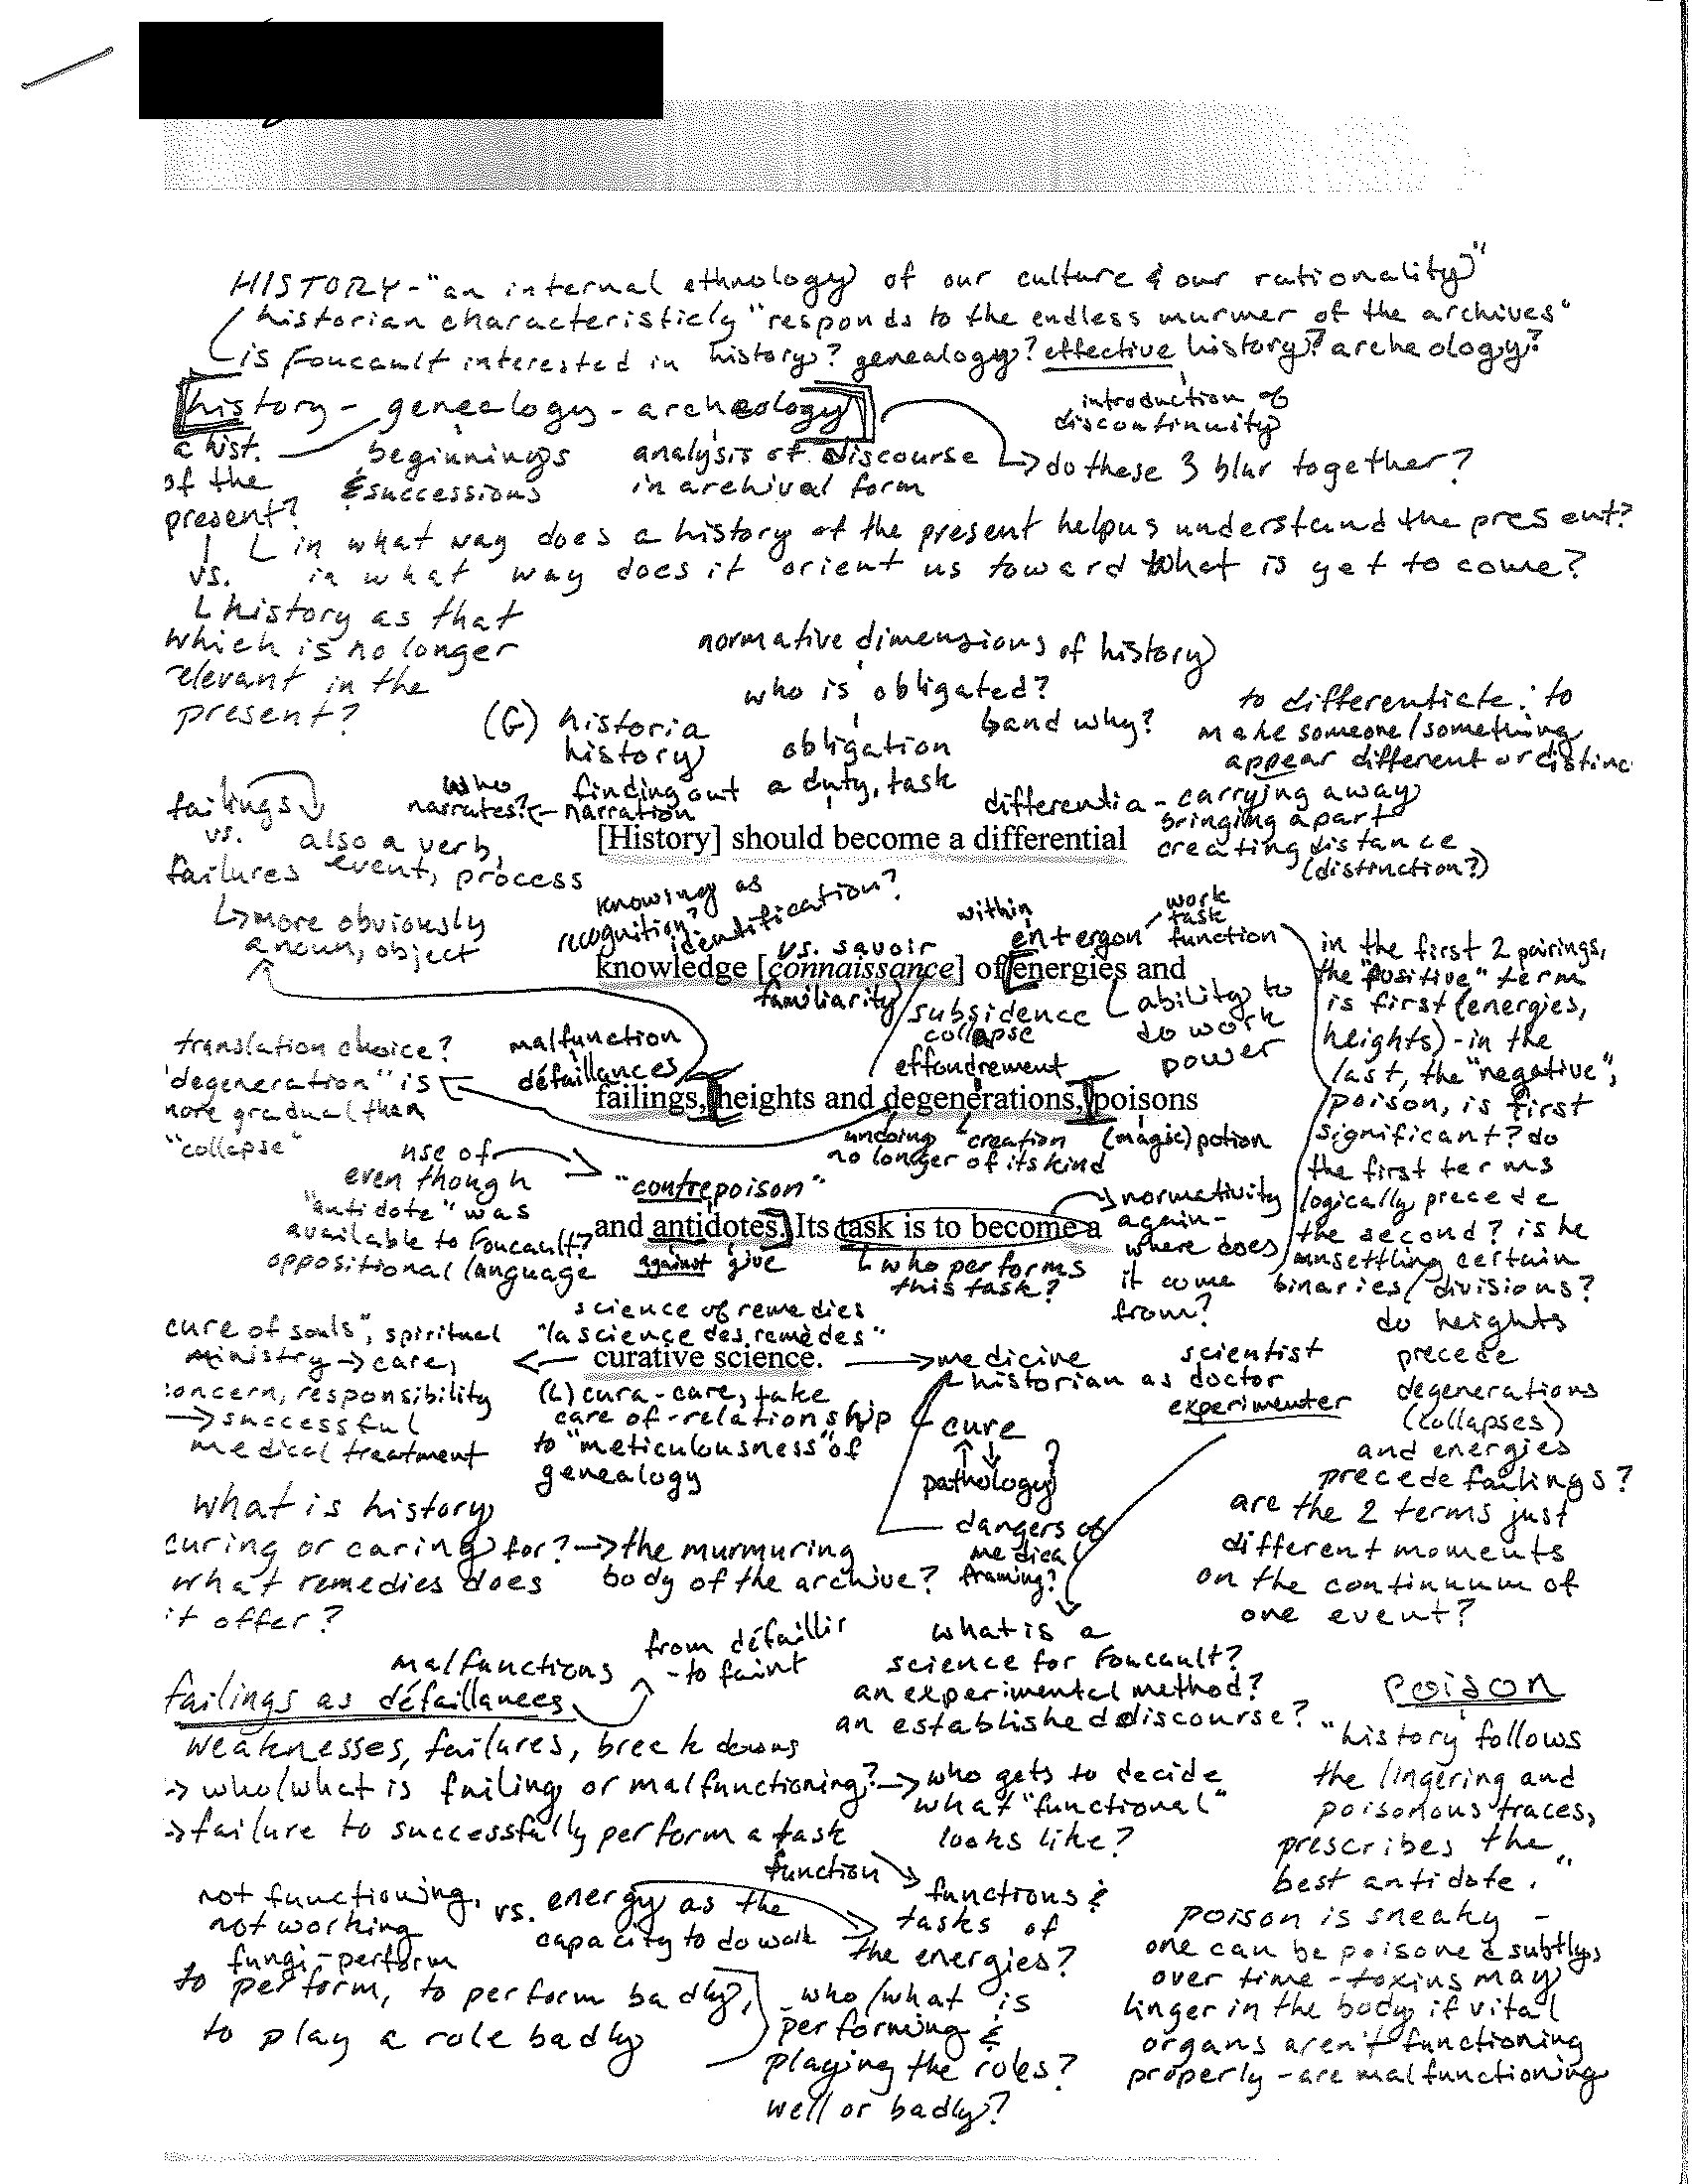 HISTORY - "an internal ethnology of our culture & our rationality"
historian characteristicly "responds to the endless murmer of the archives"
is Foucault interested in history? genealogy? effective history? archeology?
introduction of
discontinuity
history - genealogy - archeology
a hist.
of the
present?
beginnings
& successions
analysis of discourse
in archival form
do these 3 blur together?
in what way does a history of the present help us understand the present?
vs. in what way does it orient us toward what is yet to come?
history as that
which is no longer
relevant in the
present?
normative dimensions of history
who is obligated?
and why?
obligation
a duty, task
(G) historia
history
finding out
narration
who
narrates?
to differentiate: to
make someone/something
appear different or distinc
differentia - carrying away
bringing apart
creating distance
(distinction?)
failings
vs.
failures
also a verb,
event, process
more obviously
a noun, object
[History] should become a differential
knowing as
recognition?
identification?
vs. savoir
within
en ergon
work
task
function
knowledge [connaissance] of energies and
familiarity
subsidence
collapse
effondrement
ability to
do work
power
malfunction
défaillances
failings, heights and degenerations, poisons
undoing creation
no longer of its kind
(magic) potion
translation choice?
"degeneration" is
more gradual than
"collapse"
use of
even though
"antidote" was
available to Foucault?
oppositional language
"contrepoison"
and antidotes. Its task is to become a
against give
who performs
this task?
normativity
again -
where does
it come
from?
in the first 2 pairings,
the "positive" term
is first (energies,
heights) - in the
last, the "negative",
poison, is first
significant? do
the first terms
logically precede
the second? is he
unsettling certain
binaries/divisions?
do heights
precede
degenerations
(collapses)
and energies
precede failings?
are the 2 terms just
different moments
on the continuum of
one event?
science of remedies
"la science des remèdes"
curative science.
cure of souls", spiritual
ministry → care,
concern, responsibility
→ successful
medical treatment
(L) cura - care, take
care of - relationship
to "meticulousness" of
genealogy
medicine
historian as doctor
scientist
experimenter
cure
pathology?
dangers of
medical
framing?
what is history
curing or caring for? → the murmuring
body of the archive?
what remedies does
it offer?
what is a
science for Foucault?
an experimental method?
an established discourse?
malfunctions
from défaillir
- to faint
failings as défaillances
weaknesses, failures, break downs
→ who/what is failing or malfunctioning? → who gets to decide
what "functional"
looks like?
→ failure to successfully perform a task
function
functions &
tasks of
the energies?
not functioning,
not working
fungi - perform
vs. energy as the
capacity to do work
to perform, to perform badly,
to play a role badly
who/what is
performing &
playing the roles?
well or badly?
Poison
"history follows
the lingering and
poisonous traces,
prescribes the
best antidote."
poison is sneaky -
one can be poisoned subtly,
over time - toxins may
linger in the body if vital
organs aren't functioning
properly - are malfunctioning